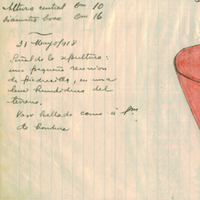 Altura central 0m 10
Diámetro boca 0m 16
31 Mayo/918
Señal de la sepultura:
una pequeña reunion
de piedrecillas, en una
leve hundidura del
terreno.
Vaso hallado como á 1m
de hondura